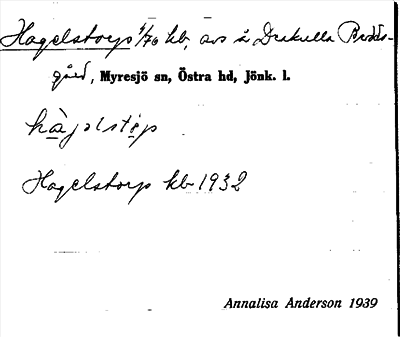 Hagelstorps 1/76 kb, avs å Drakulla Prästs-
gård, Myresjö sn, Östra hd, Jönk. l.
hàjəlstə̀p
Hagelstorp kb 1932
Annalisa Anderson 1939